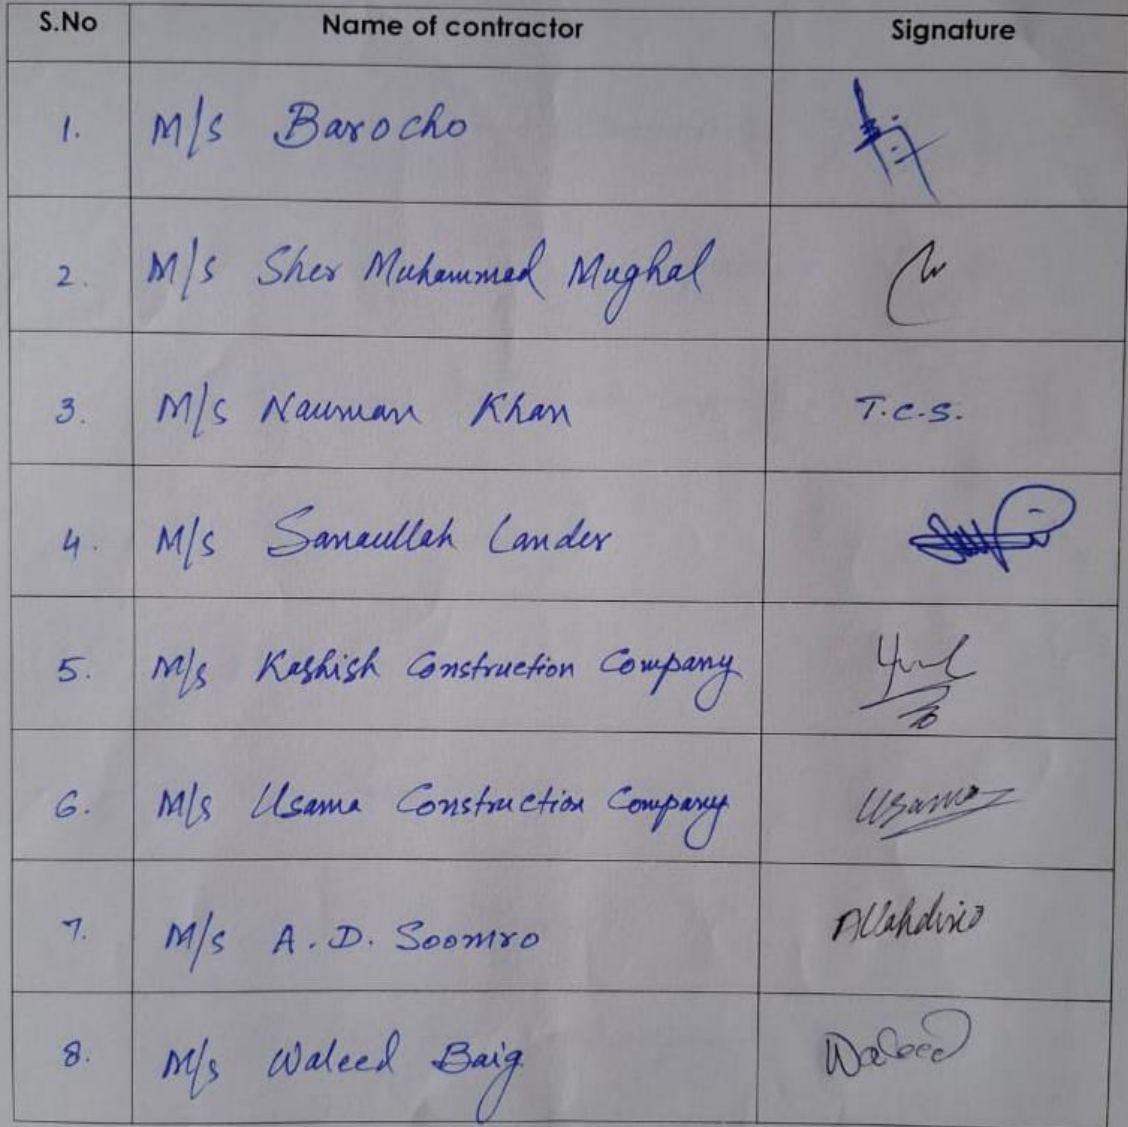 S.No Name of contractor Signature
1. M/s Barocho
2. M/s Sher Muhammad Mughal
3. M/s Nauman Khan T.C.S.
4. M/s Sanaullah Lander
5. M/s Kashish Construction Company
6. M/s Usama Construction Company Usama
7. M/s A.D. Soomro Allahdino
8. M/s Waleed Baig Waleed